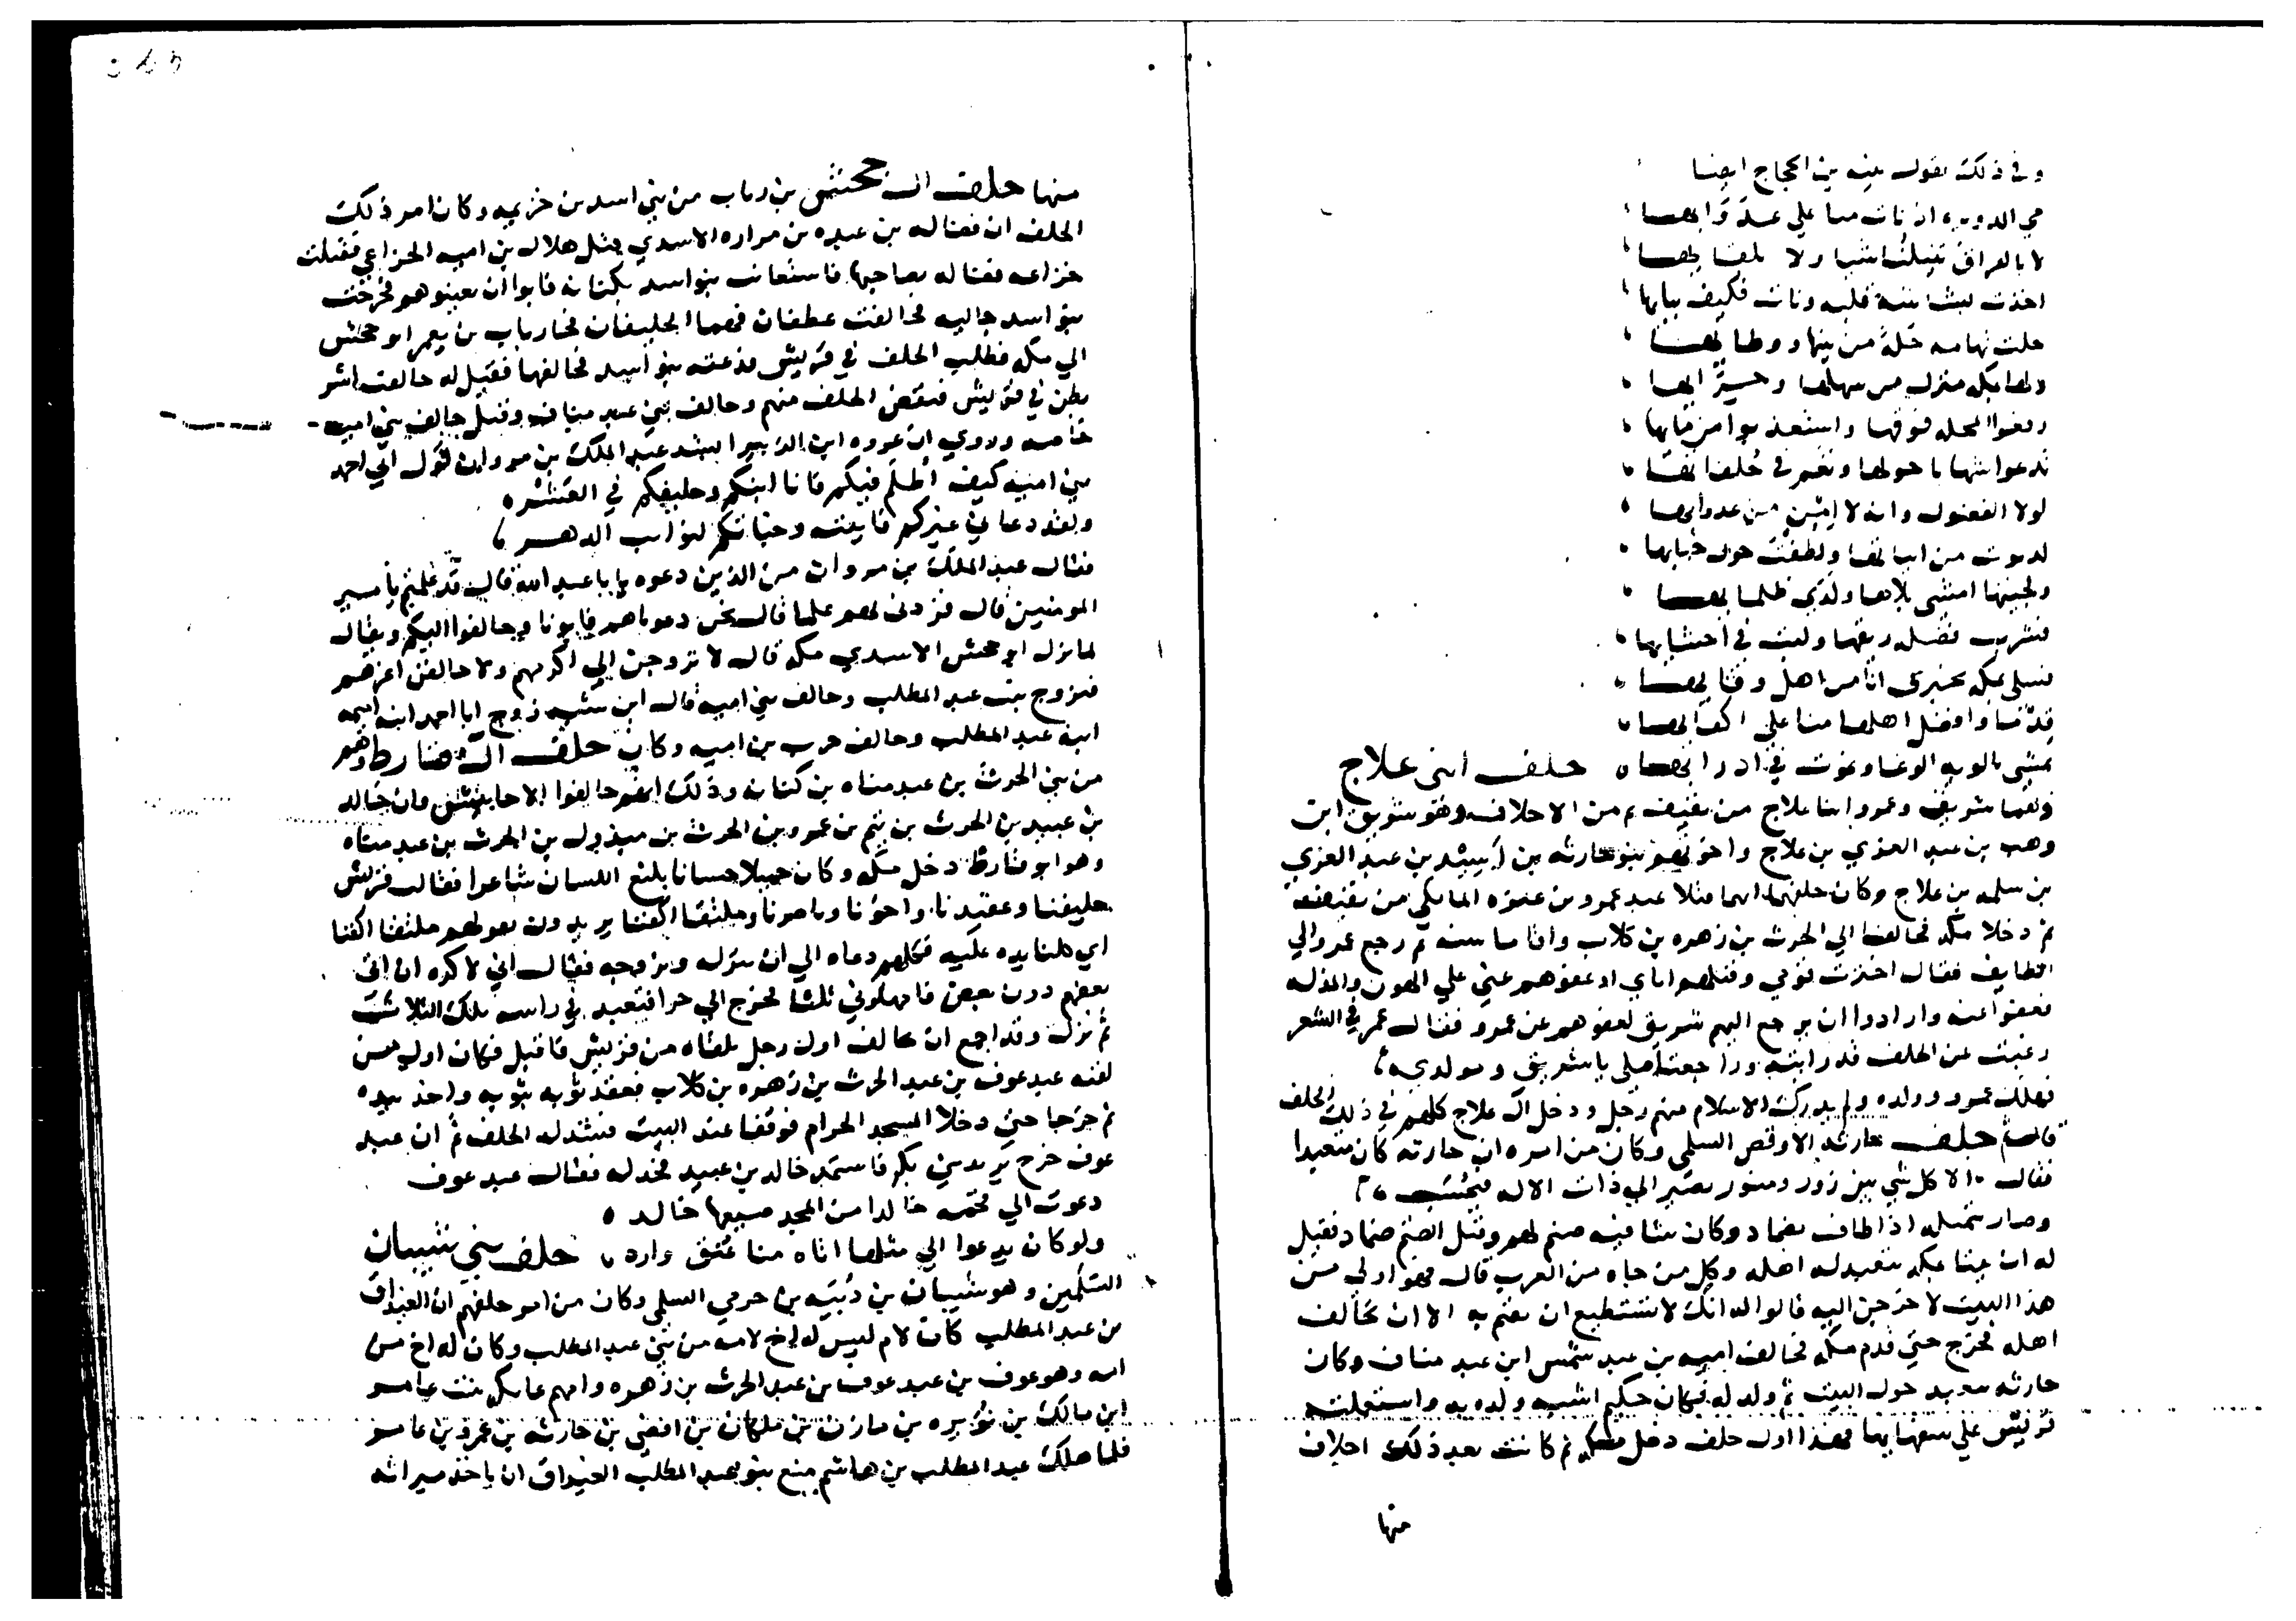 وفي ذلك يقول نبيه بن الحجاج ايضا
حي الدويره اذ نات منا علي عدوابها
لا بالفراق تنيلنا شيا ولا بلقابها
اخذت بشاشة قلبه ونات فكيف بنابها
حلت تهامه حلة من بيتها ووطابها
ولها بمكه منزل من سهلها وحرابها
رفعوا المحله فوقها واستعذبوا من مابها
تدعوا شهابا حولها وتعم في حلفابها
لولا الفضول وانه لا امن من عدوابها
لدنوت من ابياتها ولطفت حول خبابها
ولجيتها امشي بلا هاد لدي ظلمابها
فشربت فضل ريقها ولبت في احشابها
فسلي بمكه تخبري انا من اهل وفابها
قدما وافضل اهلها منا علي اكفابها
نمشي بالويه الوغا ونموت في ادرابها ه حلف ابني علاج
وهما شريق وعمرو ابنا علاج من ثقيف من الاحلاف وهو شريق ابن
وهب بن عبد العزي بن علاج واخوتهم بنو حارثه بن اسيد بن عبد العزي
بن سلمه بن علاج وكان حلفهما انهما قتلا عبد عمرو بن عنزه المالكي من ثقيف
ثم دخلا مكه فحالفا الي الحرث بن زهره بن كلاب واقاما سنه ثم رجع عمرو الي
الطايف فقال اخترت قومي وقتلهم اياي او عفوهم عني علي الهون والمذله
فعفوا عنه وارادوا ان يرجع اليهم شريق لعفوهم عن عمرو فقال عمر في الشعر
رغبت عن الحلف قد رايته وراجعت اصلي يا شريق ومولدي
فهلك عمرو وولده ولم يدرك الاسلام منهم رجل ودخل ال علاج كلهم في ذلك الحلف
قال حلف حارثه الاوقص السلمي وكان من امره ان حارثه كان متعبدا
فقال الا كل شي بين زور ومنور يصير الي ذات الاله فيجتب
وصار تمثله اذا طاف بضماد وكان بيتا فيه صنم لهم وقيل الصنم ضماد فقيل
له ان بيتا بمكه يتعبد له اهله وكل من جاه من العرب قال فهو اولي من
هذا البيت لاخرجن اليه قالوا له انك لا تستطيع ان تقيم به الا ان تحالف
اهله فخرج حتي قدم مكه فحالف اميه بن عبد شمس ابن عبد مناف وكان
حارثه يتعبد حول البيت ثم ولد له فكان حكيم اشبه ولده به واستعملته
قريش علي سفهايها فهذا اول حلف دخل مكه ثم كانت بعد ذلك احلاف
منها
منها حلف ال جحش بن رياب من بني اسد بن خزيمه وكان امر ذلك
الحلف ان فضاله بن عبده بن مراره الاسدي قتل هلال بن اميه الخزاعي فقتلت
خزاعه فضاله بصاحبها فاستعانت بنو اسد بكنانه فابوا ان يعينوهم فخرجت
بنو اسد جاليه فحالفت غطفان فهما الحليفان فجا رياب بن يعمر ابو جحش
الي مكه فطلب الحلف في قريش فدعته بنو اسد فحالفها فقيل له حالفت اشر
بطن في قريش فنقض الحلف منهم وحالف بني عبد مناف وقيل حالف بني اميه
خاصه وروي ان عروه ابن الزبير انشد عبد الملك بن مروان قول ابي احمد
بني اميه كيف اظلم فيكم وانا ابنكم وحليفكم في العشر ه
ولقد دعاني غيركم فابيته وخباتكم لنوايب الدهر
فقال عبد الملك بن مروان من الذين دعوه يا با عبد الله قال قد علمتم يا امير
المومنين قال فزدني بهم علما قال نحن دعوناهم فابونا وحالفوا اليكم ويقال
لما نزل ابو جحش الاسدي مكه قال لاتزوجن الي اكرمهم ولاحالفن اعزهم
فتزوج بنت عبد المطلب وحالف بني اميه قال ابن شبه زوج ابا احمد ابنه اميمه
ابنة عبد المطلب وحالف حرب بن اميه وكان حلف ال ضارط وهم
من بني الحرث بن عبد مناه بن كنانه وذلك انهم حالفوا الاحابيش وان خالد
بن عبيد بن الحرث بن تيم بن عمرو بن الحرث بن مبذول بن الحرث بن عبد مناه
وهو ابو ضارط دخل مكه وكان جميلا حسانا بليغ اللسان شاعرا فقالت قريش
حليفنا وعقيدنا واخونا وناصرنا وملتقا اكفنا يريدون بقولهم ملتقا اكفنا
اي كلنا يده عليه فكلهم دعاه الي ان ينزله ويزوجه فقال اني لاكره ان اتي
بعضهم دون بعض فامهلوني ثلثا فخرج الي حرا فتعبد في راسه تلك الثلاث
ثم نزل وقد اجمع ان يحالف اول رجل يلقاه من قريش فاقبل فكان اول من
لقيه عبد عوف بن عبد الحرث بن زهره بن كلاب فعقد ثوبه بثوبه واخذ بيده
ثم خرجا حتي دخلا المسجد الحرام فوقفا عند البيت فشد له الحلف ثم ان عبد
عوف خرج يريد بني بكر فاستمد خالد بن عبيد فخذله فقال عبد عوف
دعوت الي خالدا من المجد ضيعها خالد ه
ولو كان يدعوا الي مثلها اتاه منا عنق وارد حلف بني شيبان
السلمين وهو شيبان بن دبيه بن حرمي السلمي وكان من امر حلفهم ان الغيداق
بن عبد المطلب كان لام ليس له اخ لامه من بني عبد المطلب وكان له اخ من
امه وهو عوف بن عبد عوف بن عبد الحرث بن زهره وامهم عاتكه بنت عامر
ابن مالك بن نويره بن مازن بن ملكان بن افصي بن حارثه بن عمرو بن عامر
فلما هلك عبد المطلب بن هاشم منع بنو عبد المطلب الغيداق ان ياخذ ميراثه